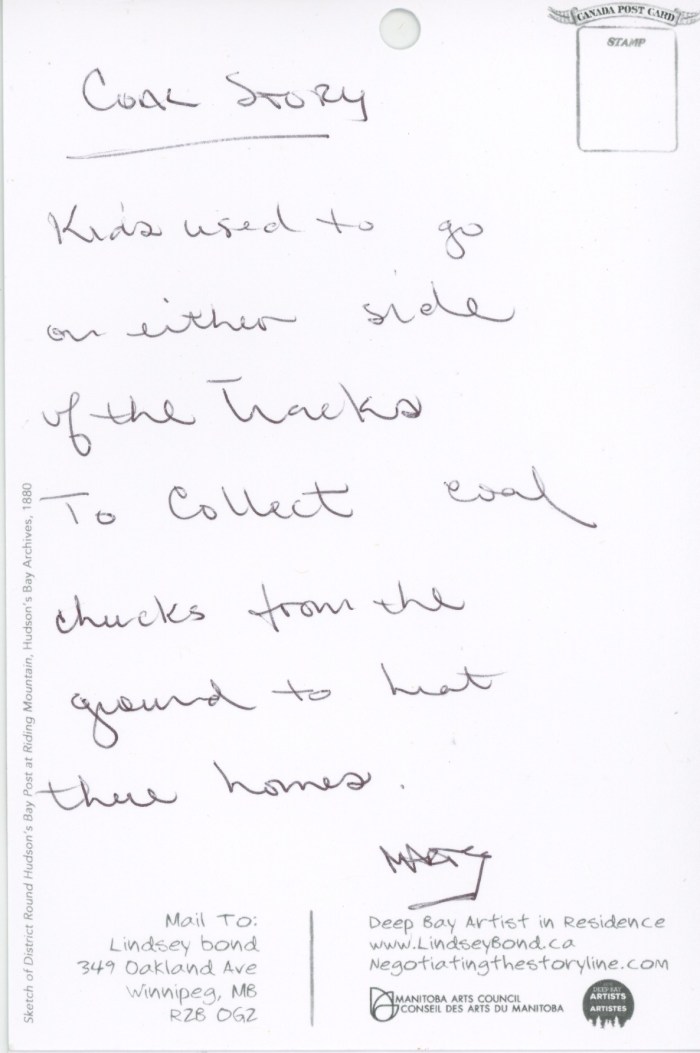 CANADA POST CARD
STAMP
Coal Story
Kids used to go
on either side
of the Tracks
To Collect coal
chucks from the
ground to heat
there homes.
Marty
Sketch of District Round Hudson's Bay Post at Riding Mountain, Hudson's Bay Archives, 1880
Mail To:
Lindsey bond
349 Oakland Ave
Winnipeg, MB
R2B 0G2
Deep Bay Artist in Residence
www.LindseyBond.ca
Negotiatingthestoryline.com
MANITOBA ARTS COUNCIL
CONSEIL DES ARTS DU MANITOBA
DEEP BAY
ARTISTS
ARTISTES